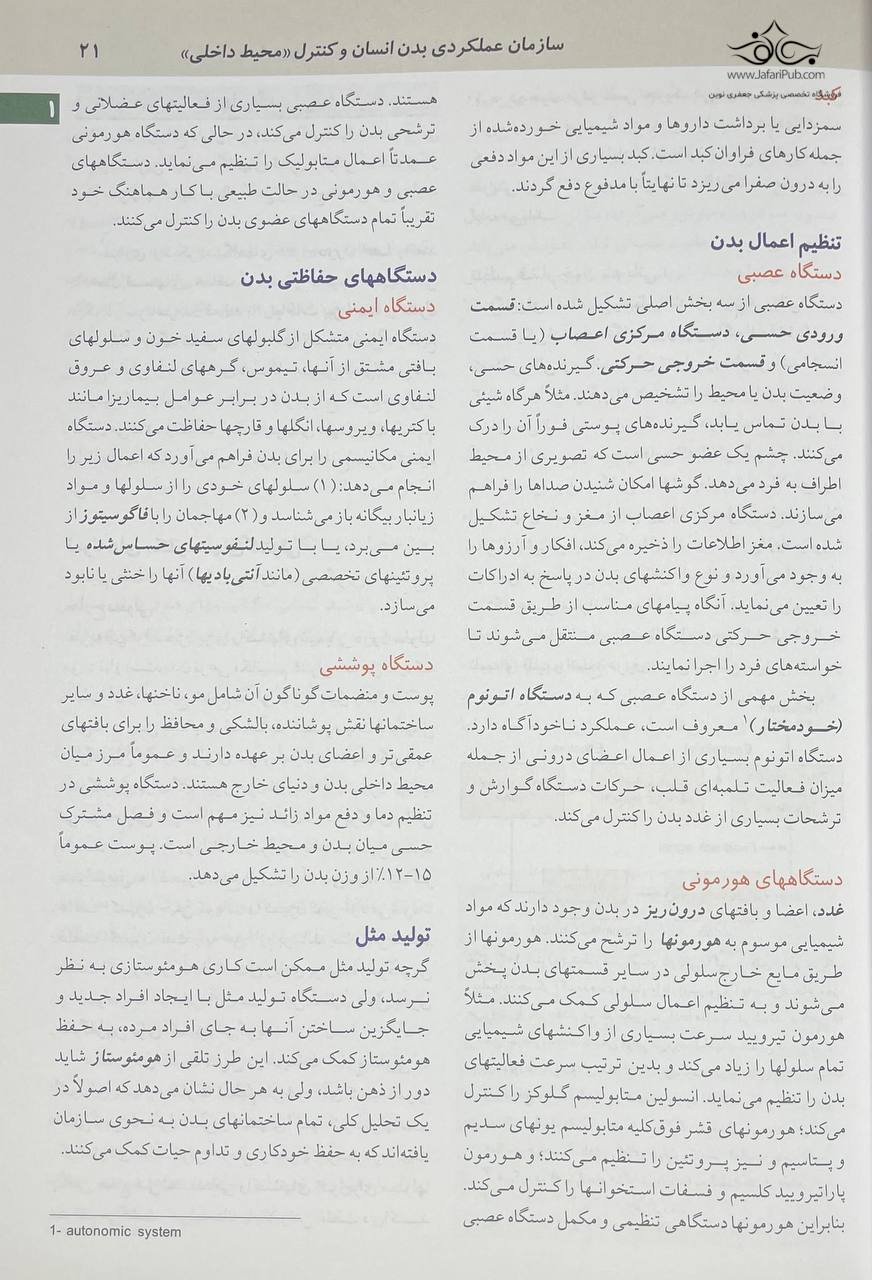 سازمان عملکردی بدن انسان و کنترل «محیط داخلی»
۲۱
www.JafariPub.com
فروشگاه تخصصی پزشکی جعفری نوین
۱
کبد
سمزدایی یا برداشت داروها و مواد شیمیایی خورده‌شده از
جمله کارهای فراوان کبد است. کبد بسیاری از این مواد دفعی
را به درون صفرا می‌ریزد تا نهایتاً با مدفوع دفع گردند.
تنظیم اعمال بدن
دستگاه عصبی
دستگاه عصبی از سه بخش اصلی تشکیل شده است: قسمت
ورودی حسی، دستگاه مرکزی اعصاب (یا قسمت
انسجامی) و قسمت خروجی حرکتی. گیرنده‌های حسی،
وضعیت بدن یا محیط را تشخیص می‌دهند. مثلاً هرگاه شیئی
با بدن تماس یابد، گیرنده‌های پوستی فوراً آن را درک
می‌کنند. چشم یک عضو حسی است که تصویری از محیط
اطراف به فرد می‌دهد. گوشها امکان شنیدن صداها را فراهم
می‌سازند. دستگاه مرکزی اعصاب از مغز و نخاع تشکیل
شده است. مغز اطلاعات را ذخیره می‌کند، افکار و آرزوها را
به وجود می‌آورد و نوع واکنشهای بدن در پاسخ به ادراکات
را تعیین می‌نماید. آنگاه پیامهای مناسب از طریق قسمت
خروجی حرکتی دستگاه عصبی منتقل می‌شوند تا
خواسته‌های فرد را اجرا نمایند.
بخش مهمی از دستگاه عصبی که به دستگاه اتونوم
(خودمختار)۱ معروف است، عملکرد ناخودآگاه دارد.
دستگاه اتونوم بسیاری از اعمال اعضای درونی از جمله
میزان فعالیت تلمبه‌ای قلب، حرکات دستگاه گوارش و
ترشحات بسیاری از غدد بدن را کنترل می‌کند.
دستگاههای هورمونی
غدد، اعضا و بافتهای درون‌ریز در بدن وجود دارند که مواد
شیمیایی موسوم به هورمونها را ترشح می‌کنند. هورمونها از
طریق مایع خارج‌سلولی در سایر قسمتهای بدن پخش
می‌شوند و به تنظیم اعمال سلولی کمک می‌کنند. مثلاً
هورمون تیرویید سرعت بسیاری از واکنشهای شیمیایی
تمام سلولها را زیاد می‌کند و بدین ترتیب سرعت فعالیتهای
بدن را تنظیم می‌نماید. انسولین متابولیسم گلوکز را کنترل
می‌کند؛ هورمونهای قشر فوق‌کلیه متابولیسم یونهای سدیم
و پتاسیم و نیز پروتئین را تنظیم می‌کنند؛ و هورمون
پاراتیرویید کلسیم و فسفات استخوانها را کنترل می‌کند.
بنابراین هورمونها دستگاهی تنظیمی و مکمل دستگاه عصبی
هستند. دستگاه عصبی بسیاری از فعالیتهای عضلانی و
ترشحی بدن را کنترل می‌کند، در حالی که دستگاه هورمونی
عمدتاً اعمال متابولیک را تنظیم می‌نماید. دستگاههای
عصبی و هورمونی در حالت طبیعی با کار هماهنگ خود
تقریباً تمام دستگاههای عضوی بدن را کنترل می‌کنند.
دستگاههای حفاظتی بدن
دستگاه ایمنی
دستگاه ایمنی متشکل از گلبولهای سفید خون و سلولهای
بافتی مشتق از آنها، تیموس، گرههای لنفاوی و عروق
لنفاوی است که از بدن در برابر عوامل بیماریزا مانند
باکتریها، ویروسها، انگلها و قارچها حفاظت می‌کنند. دستگاه
ایمنی مکانیسمی را برای بدن فراهم می‌آورد که اعمال زیر را
انجام می‌دهد: (۱) سلولهای خودی را از سلولها و مواد
زیانبار بیگانه باز می‌شناسد و (۲) مهاجمان را با فاگوسیتوز از
بین می‌برد، یا با تولید لنفوسیتهای حساس‌شده یا
پروتئینهای تخصصی (مانند آنتی‌بادیها) آنها را خنثی یا نابود
می‌سازد.
دستگاه پوششی
پوست و منضمات گوناگون آن شامل مو، ناخنها، غدد و سایر
ساختمانها نقش پوشاننده، بالشکی و محافظ را برای بافتهای
عمقی‌تر و اعضای بدن بر عهده دارند و عموماً مرز میان
محیط داخلی بدن و دنیای خارج هستند. دستگاه پوششی در
تنظیم دما و دفع مواد زائد نیز مهم است و فصل مشترک
حسی میان بدن و محیط خارجی است. پوست عموماً
۱۲-۱۵٪ از وزن بدن را تشکیل می‌دهد.
تولید مثل
گرچه تولید مثل ممکن است کاری هومئوستازی به نظر
نرسد، ولی دستگاه تولید مثل با ایجاد افراد جدید و
جایگزین ساختن آنها به جای افراد مرده، به حفظ
هومئوستاز کمک می‌کند. این طرز تلقی از هومئوستاز شاید
دور از ذهن باشد، ولی به هر حال نشان می‌دهد که اصولاً در
یک تحلیل کلی، تمام ساختمانهای بدن به نحوی سازمان
یافته‌اند که به حفظ خودکاری و تداوم حیات کمک می‌کنند.
1- autonomic system